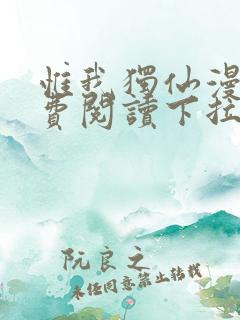 惟我獨仙漫
費閱讀下拉
阮良之
未经同意禁止转载